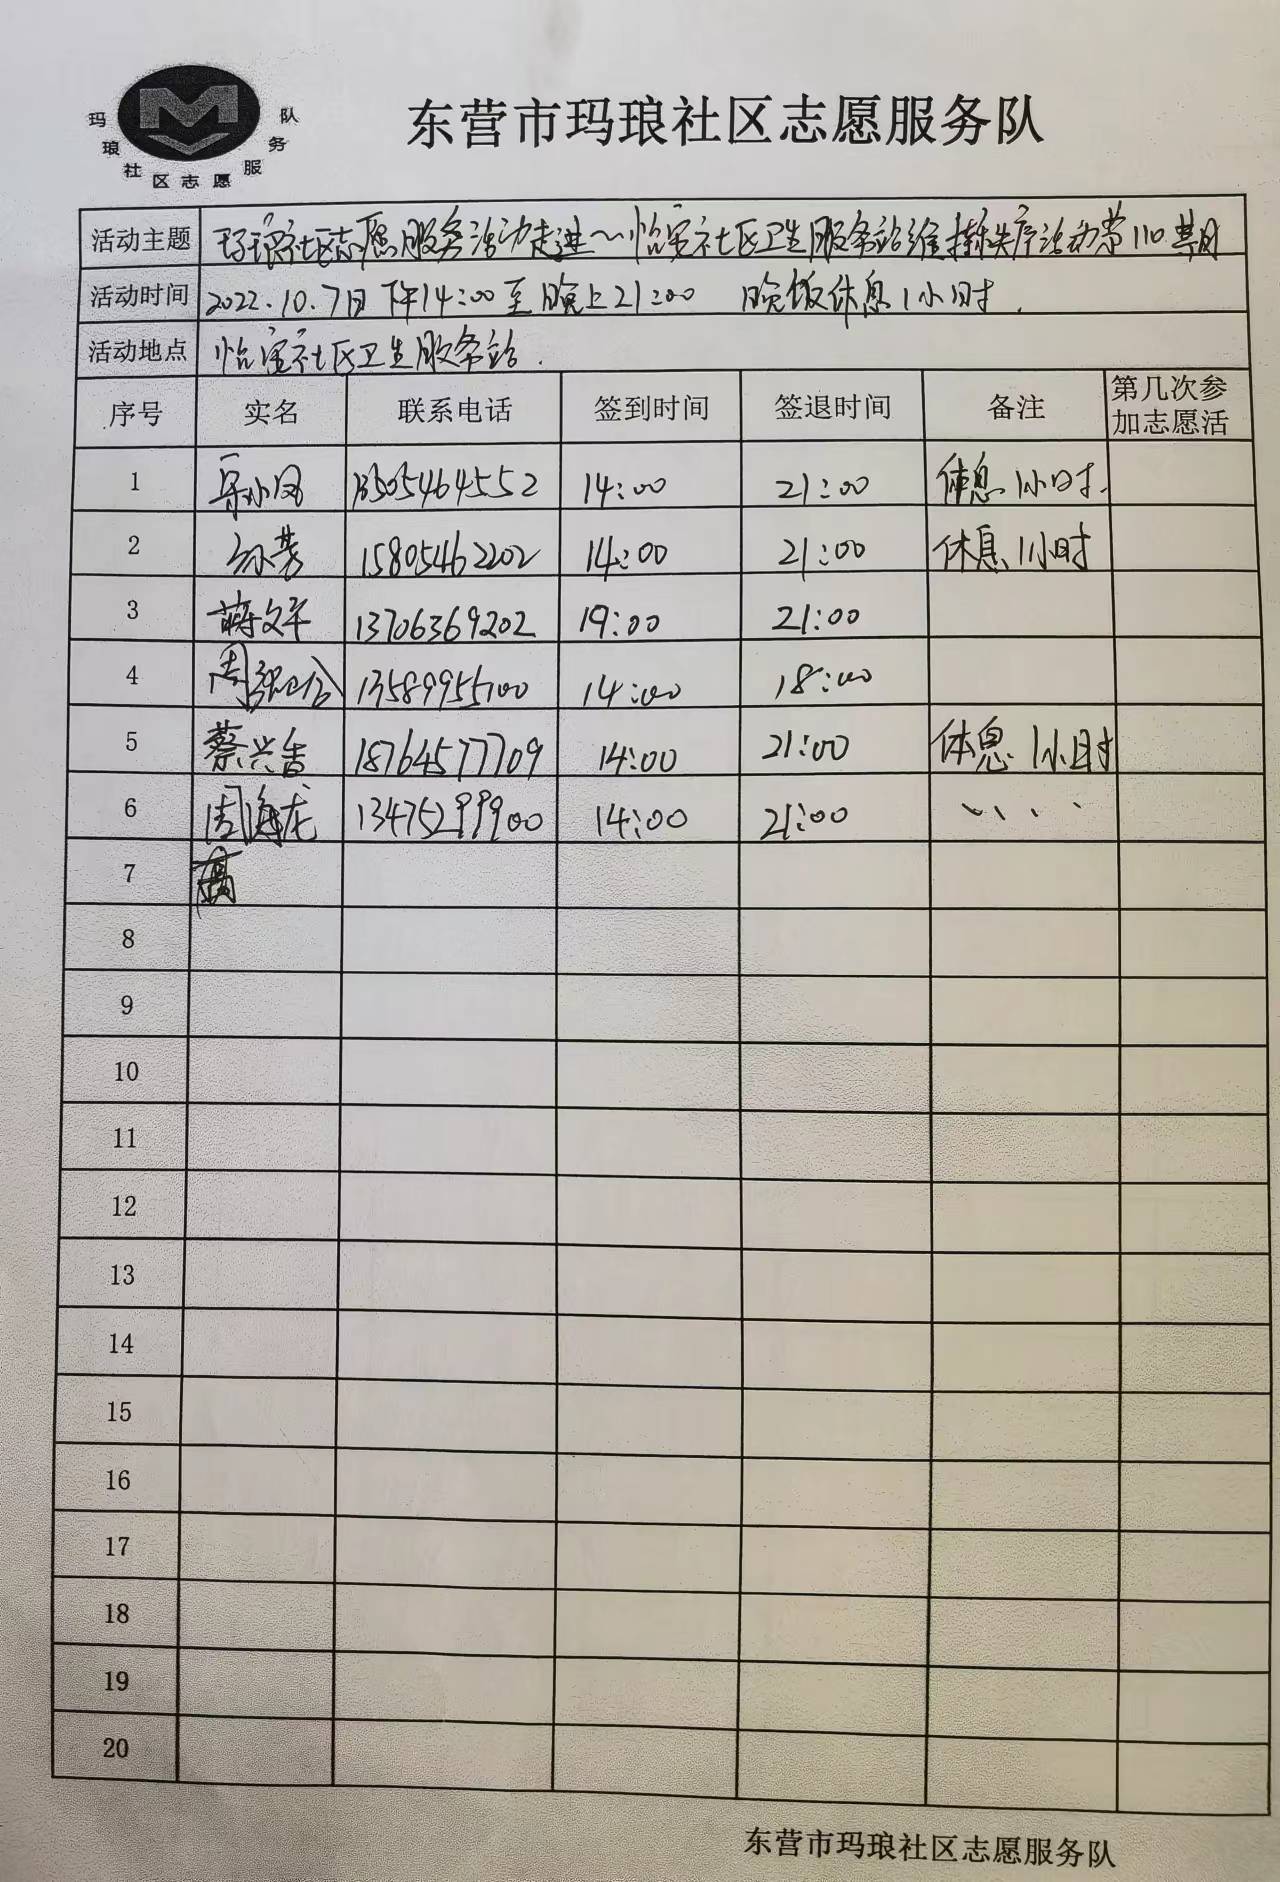 玛琅社区志愿服务队
东营市玛琅社区志愿服务队
活动主题 玛琅社区志愿服务活动走进~怡宝社区卫生服务站维持秩序活动第110期
活动时间 2022.10.7日下午14:00至晚上21:00 晚饭休息1小时.
活动地点 怡宝社区卫生服务站.
序号 实名 联系电话 签到时间 签退时间 备注 第几次参
加志愿活
1 小凤 13505464552 14:00 21:00 休息1小时.
2 孙芳 15805462202 14:00 21:00 休息1小时
3 蒋文平 13706369202 19:00 21:00
4 周 13589955700 14:00 18:00
5 蔡兴香 18764577709 14:00 21:00 休息1小时
6 周海龙 13475299900 14:00 21:00 、、、、
7
8
9
10
11
12
13
14
15
16
17
18
19
20
东营市玛琅社区志愿服务队